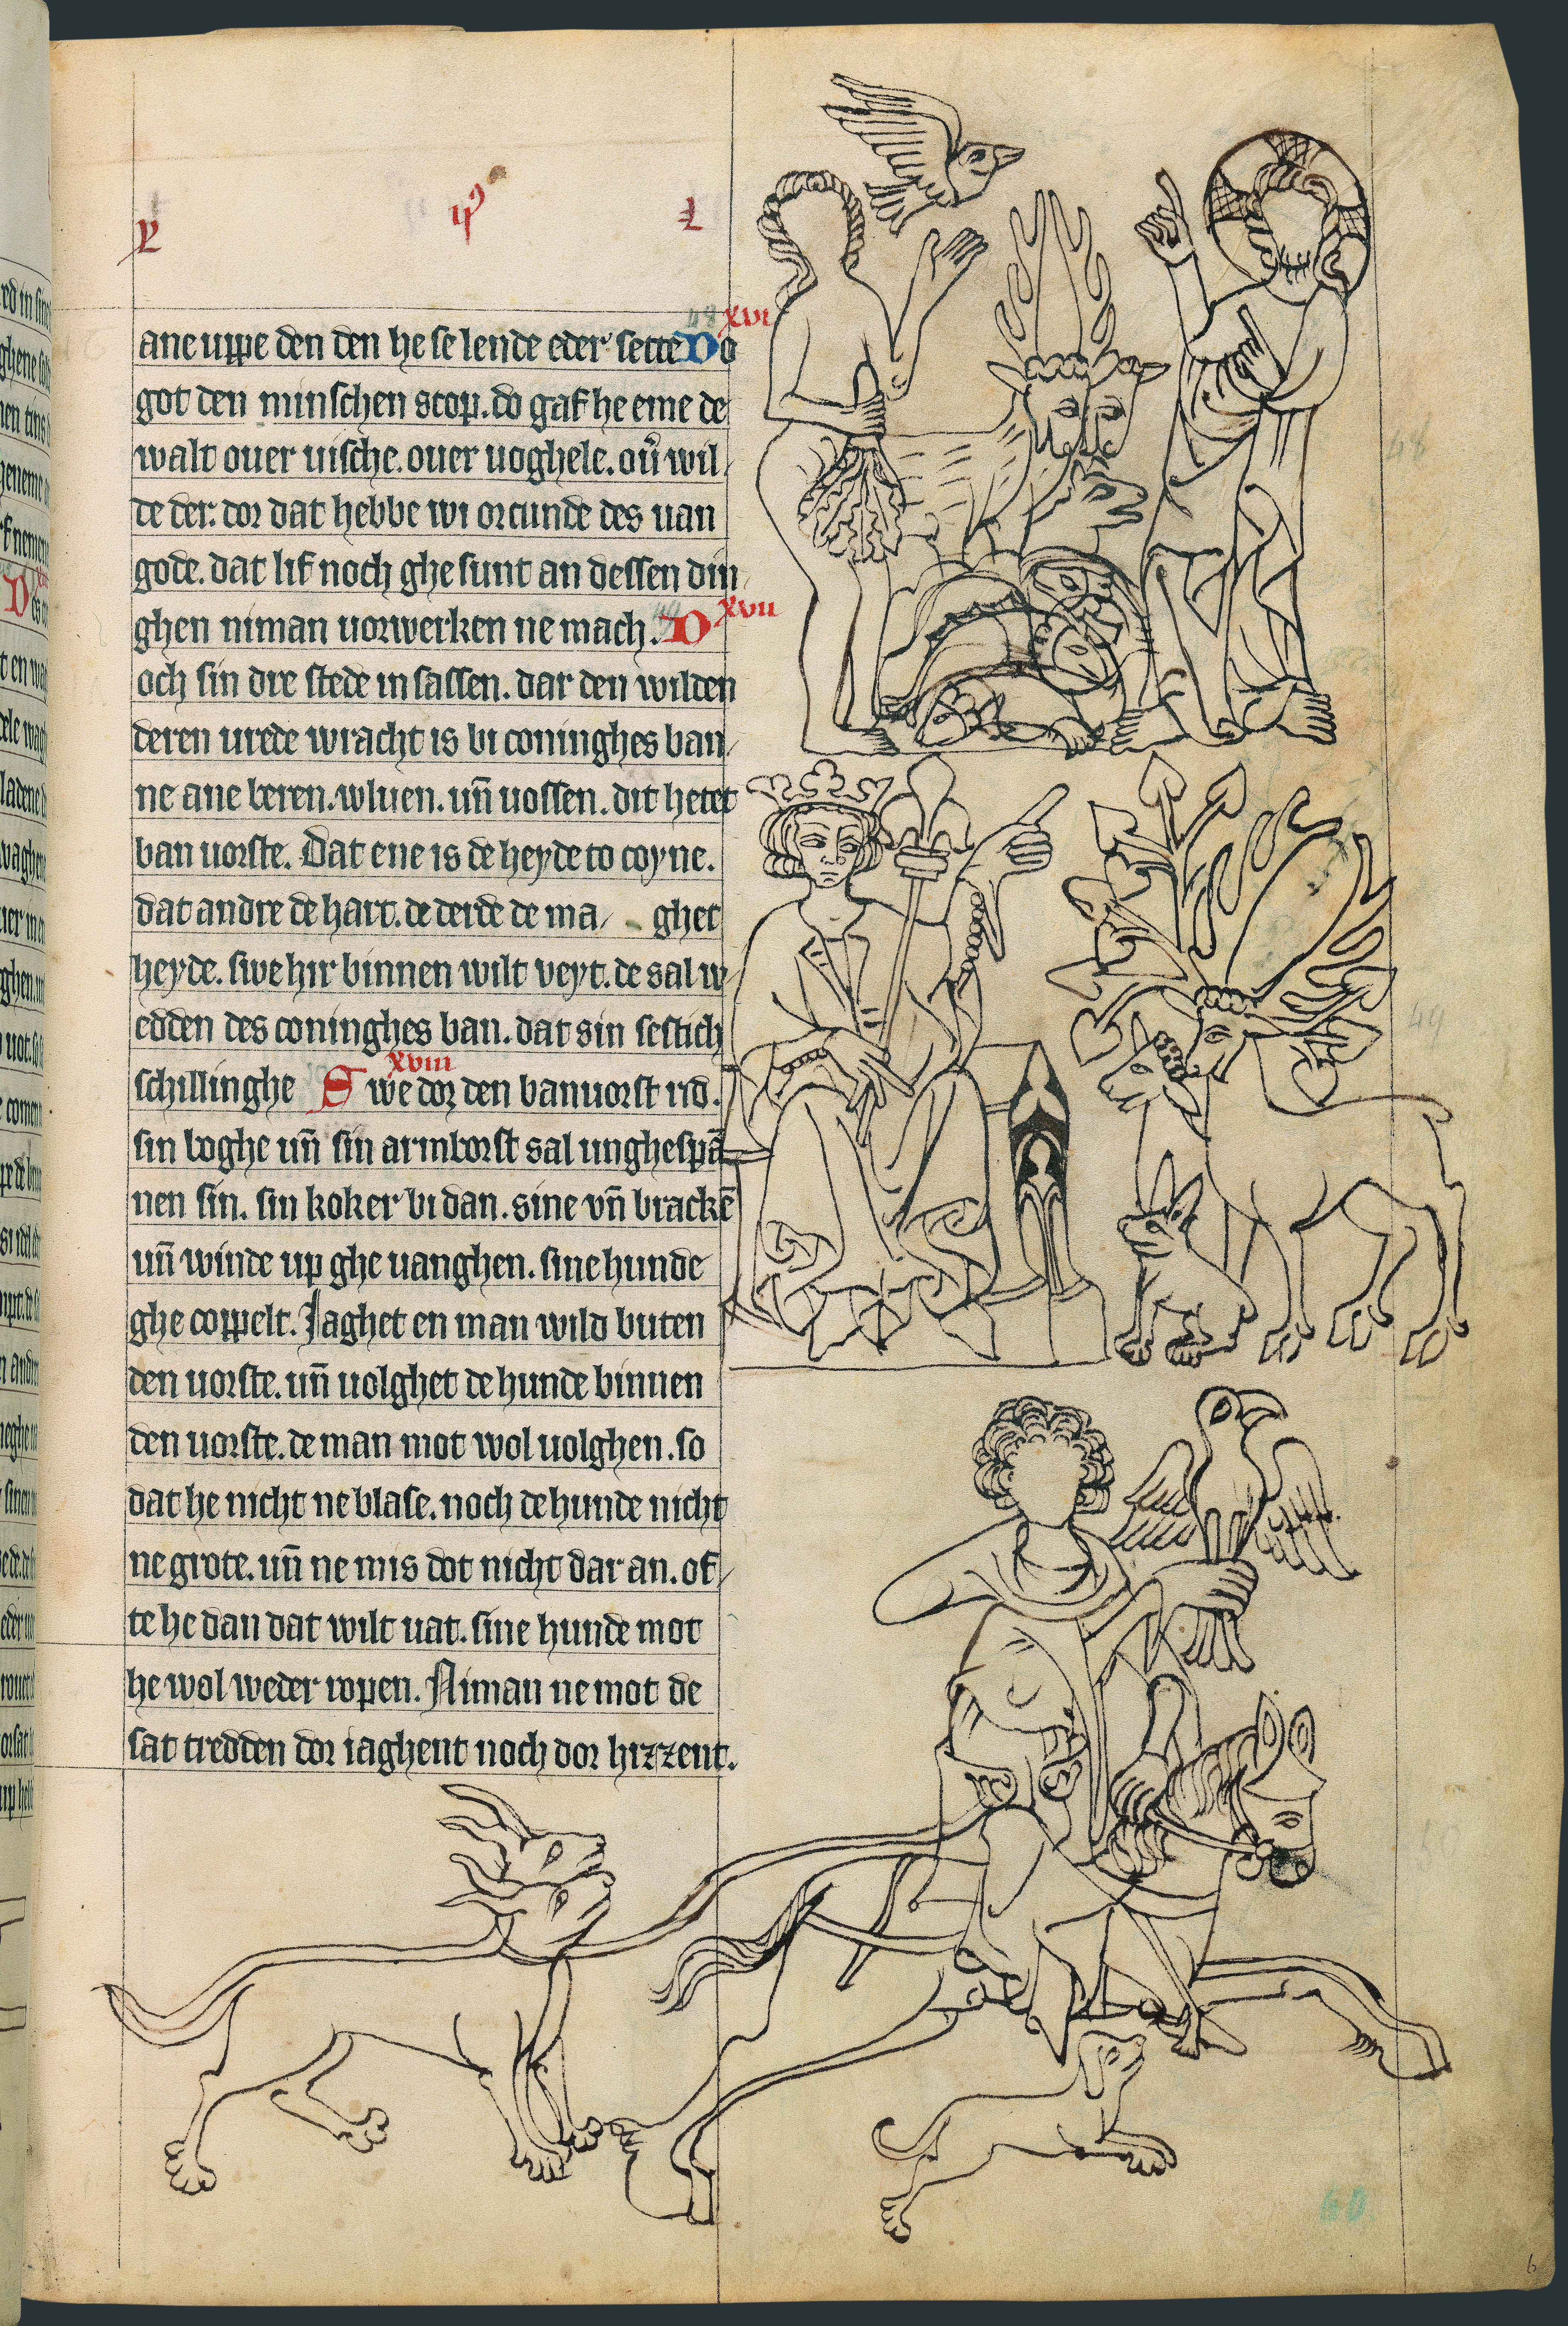 ane uppe den den he se sende eder sette Do
xvi
got den minschen scop. do gaf he eme de
walt ouer vische. ouer voghele. ou̕ wil,
de der. dor dat hebbe wi orcunde des van
gode. dat lif noch ghe sunt an dessen din
ghen niman vorwerken ne mach. D
xvii
och sin dre stede in sassen. dar den wilden
deren vrede wracht is bi coninghes ban,
ne ane beren. wluen. un̄ vossen. dit hetet
ban vorste. Dat ene is de heyde to coyne.
dat andre de hart. de derde de ma, ghet
heyde. swe hir binnen wilt veyt. de sal w,
edden des coninghes ban. dat sin sestich
xviii
schillinghe Swe dor den banvorst rid.
sin boghe un̄ sin armborst sal unghespā
nen sin. sin koker bi dan. sine vn̄ brackē
un̄ winde up ghe vanghen. sine hunde
ghe coppelt. Jaghet en man wild buten
den vorste. un̄ volghet de hunde binnen
den vorste. de man mot wol volghen. so
dat he nicht ne blase. noch de hunde nicht
ne grote. un̄ ne mis dot nicht dar an. of,
te he dan dat wilt vat. sine hunde mot
he wol weder ropen. Niman ne mot de
sat tredden dor iaghent noch dor hizzent.
48
49
60
6